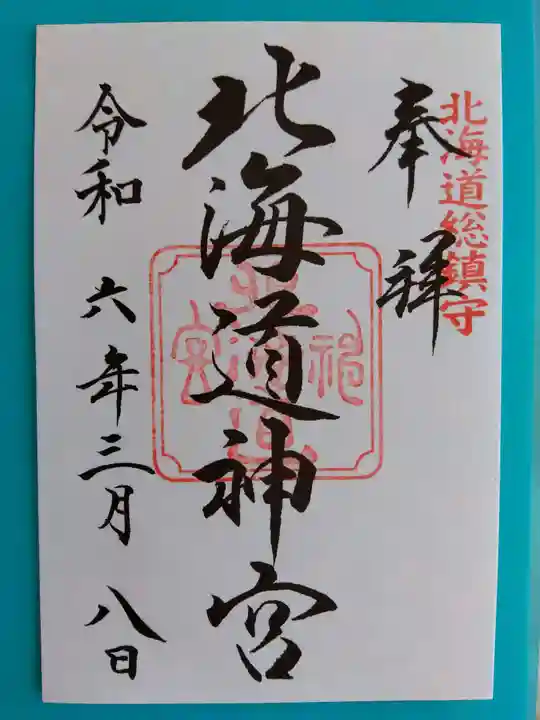 北海道総鎮守
奉拝
北海道神宮
北海道神宮
令和六年三月八日